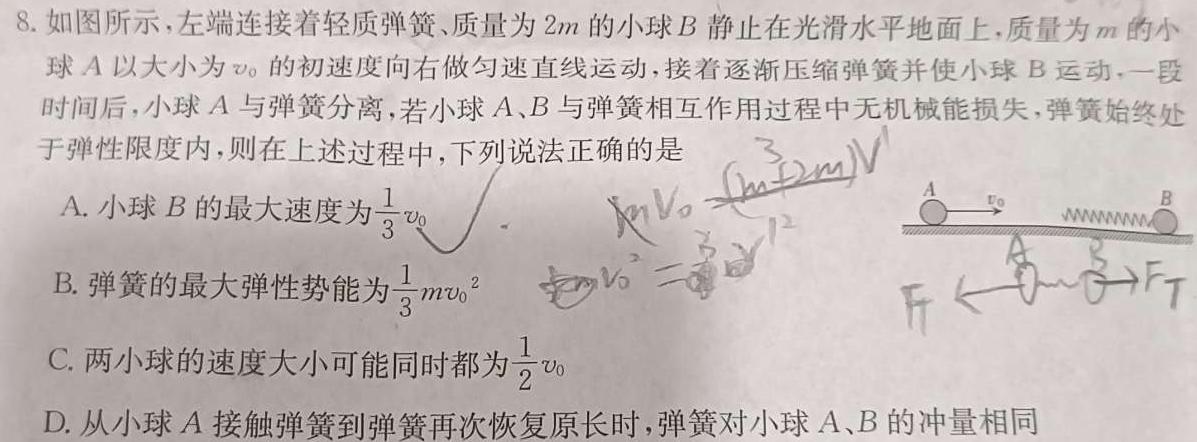 8. 如图所示,左端连接着轻质弹簧、质量为 2m 的小球 B 静止在光滑水平地面上,质量为 m 的小
球 A 以大小为 v₀ 的初速度向右做匀速直线运动,接着逐渐压缩弹簧并使小球 B 运动,一段
时间后,小球 A 与弹簧分离,若小球 A、B 与弹簧相互作用过程中无机械能损失,弹簧始终处
于弹性限度内,则在上述过程中,下列说法正确的是
A. 小球 B 的最大速度为\frac{1}{3}v₀
mV₀ = (m+2m)V
3
B. 弹簧的最大弹性势能为\frac{1}{3}mv₀²
A v₀ B
A B
F_T F_T
C. 两小球的速度大小可能同时都为\frac{1}{2}v₀
D. 从小球 A 接触弹簧到弹簧再次恢复原长时,弹簧对小球 A、B 的冲量相同